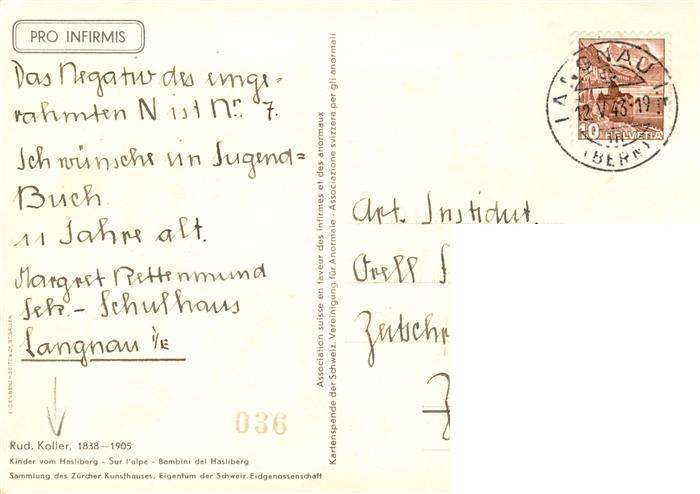 PRO INFIRMIS
Das Negativ des einge-
rahmten N ist Nr. 7.
Ich wünsche ein Jugend=
Buch.
11 Jahre alt.
Margret Rettenmund
Sek. - Schulhaus
Langnau i/E
036
Rud. Koller, 1838—1905
Kinder vom Hasliberg - Sur l'alpe - Bambini del Hasliberg
Sammlung des Zürcher Kunsthauses, Eigentum der Schweiz. Eidgenossenschaft
Association suisse en faveur des infirmes et des anormaux
Kartenspende der Schweiz. Vereinigung für Anormale - Associazione svizzera per gli anormali
LANGNAU
43-19
(BERN)
10 HELVETIA
Art. Institut.
Orell
Zeitschr